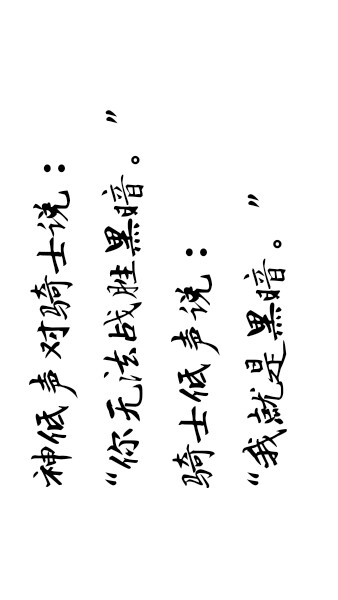 神低声对骑士说：
“你无法战胜黑暗。”
骑士低声说：
“我就是黑暗。”